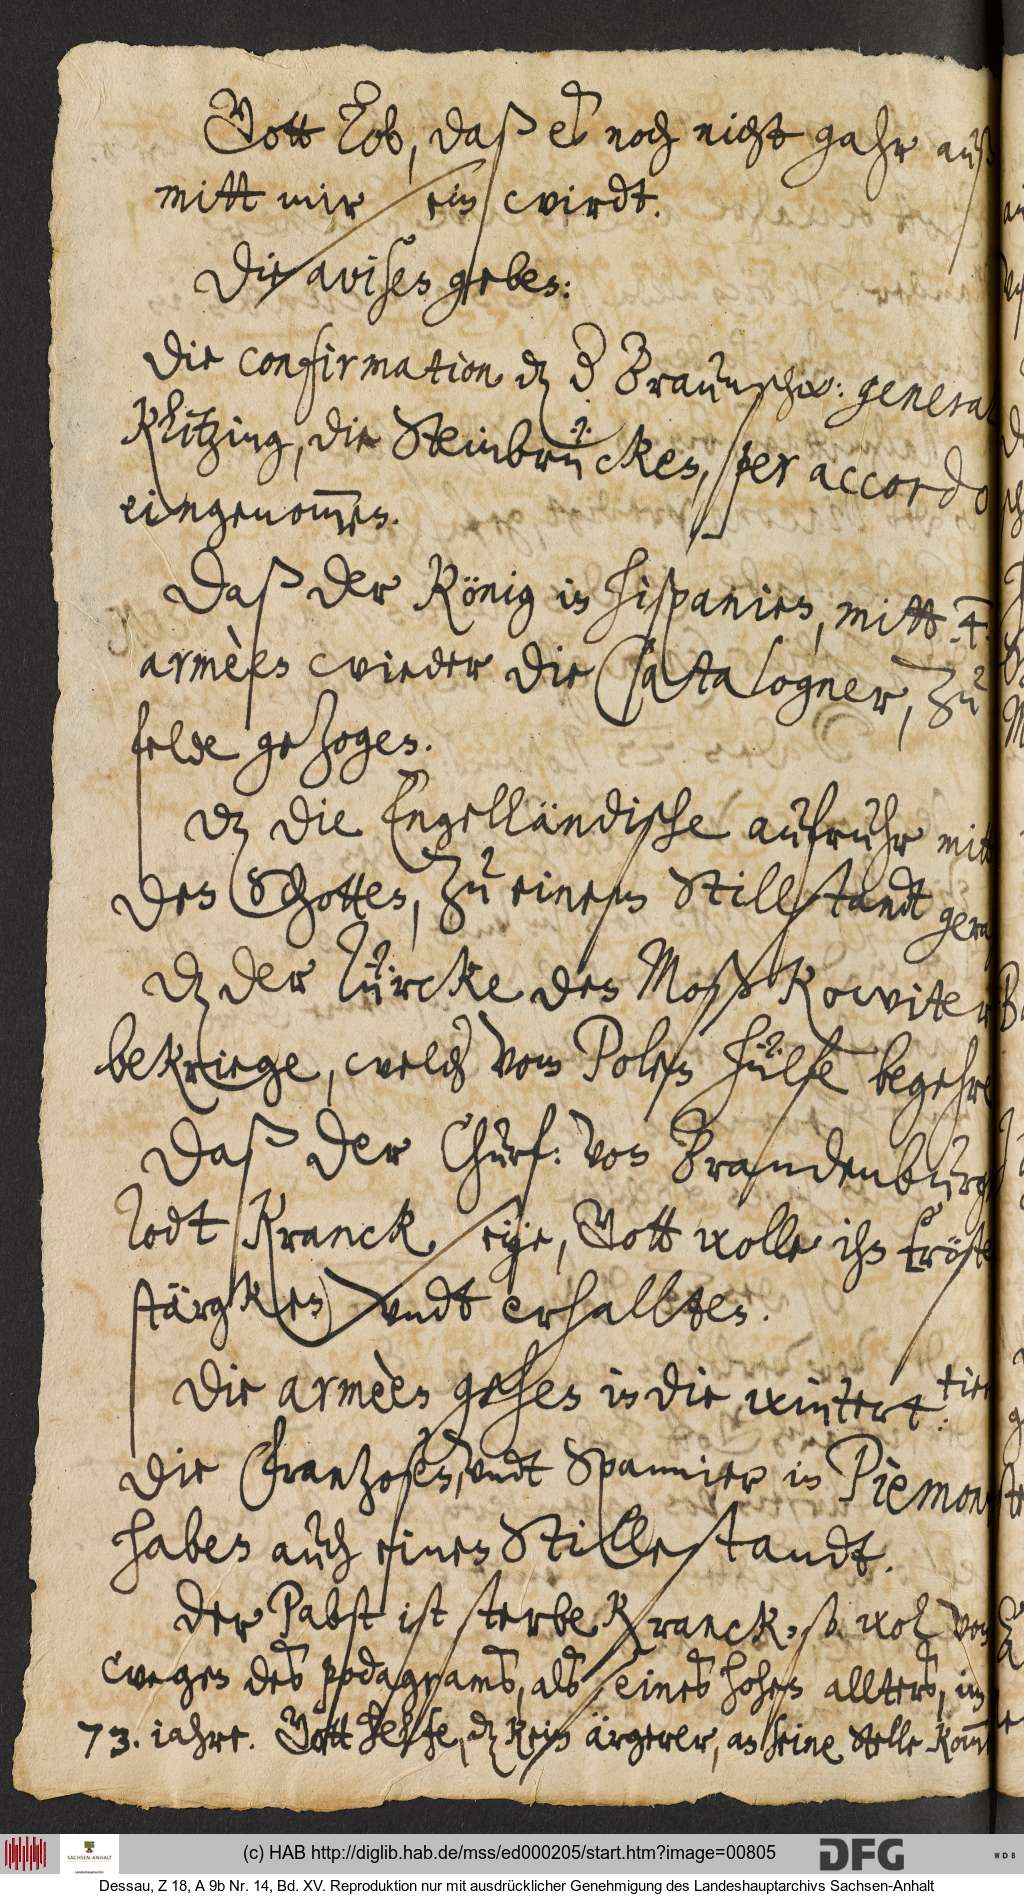 Gott Lob, daß es noch nicht gahr auß
mitt mir sein wirdt.
Die avisen geben:
Die confirmation dz d Braunschw: general
Klitzing, die Steinbrücken, per accordo
eingenommen.
Daß der König in hispanien, mitt 4.
armèen wieder die Catalogner, zu
felde gezogen.
dz die Engelländische aufruhr mitt
den Schotten, zu einem Stillstandt gera
dz der Türcke den Moßkowiter
bekriege, welch vom Polen hülfe begehre
Daß der Churf: von Brandenburg
Todt Kranck seye, Gott wolle ihn tröste
stärgken undt erhallten.
Die armèen gehen in die winterqu:tier
Die Frantzosen, undt Spannier in Piemon
haben auch einen Stillestandt.
Der Pabst ist sterbe Kranck, so wol von
wegen des podagrams, als seines hohen allters, im
73. iahre. Gott helfe, dz kein ärgerer, an seine stelle komme
(c) HAB http://diglib.hab.de/mss/ed000205/start.htm?image=00805
SACHSEN-ANHALT
DFG
WDB
Dessau, Z 18, A 9b Nr. 14, Bd. XV. Reproduktion nur mit ausdrücklicher Genehmigung des Landeshauptarchivs Sachsen-Anhalt